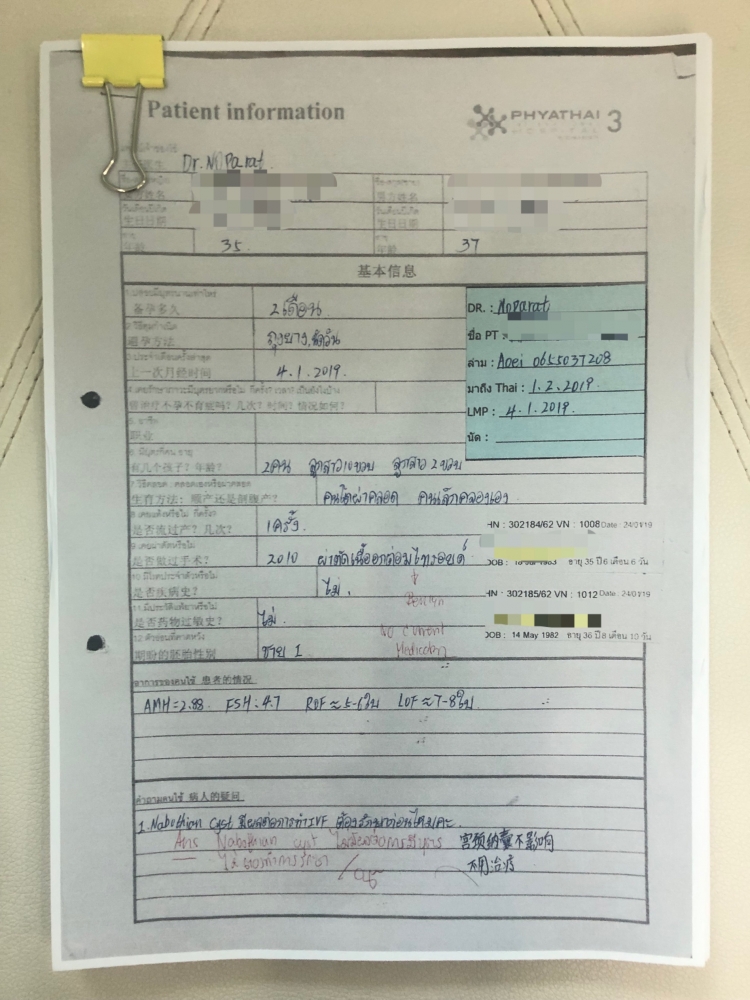 Patient information
PHYATHAI 3
Dr. Noparat.
女方姓名
男方姓名
生日日期
生日日期
年龄 35. 年龄 37
基本信息
备孕多久 2 เดือน
避孕方法 ถุงยาง, นับวัน
上一次月经时间 4.1.2019.
曾治疗不孕不育症吗？几次？时间？情况如何？
职业
DR. : Noparat
ชื่อ PT
ล่าม : Aoei 0655037208
มาถึง Thai : 1.2.2019.
LMP : 4.1.2019.
นัด :
有几个孩子？年龄？ 2 คน ลูกสาว 10 ขวบ ลูกสาว 2 ขวบ
生育方法：顺产还是剖腹产？ คนโตผ่าคลอด คนเล็กคลอดเอง
是否流过产？几次？ 1 ครั้ง
是否做过手术？ 2010 ผ่าตัดเนื้องอกต่อมไทรอยด์
是否疾病史？ ไม่.
是否药物过敏史？ ไม่.
no current
Medication
期盼的胚胎性别 ชาย 1
HN : 302184/62 VN : 1008 Date : 24/01/19
DOB : อายุ 35 ปี 6 เดือน 6 วัน
HN : 302185/62 VN : 1012 Date : 24/01/19
DOB : 14 May 1982 อายุ 36 ปี 8 เดือน 10 วัน
อาการของคนไข้ 患者的情况
AMH = 2.88 FSH : 4.7 ROF ≈ 5-6 ใบ LOF ≈ 7-8 ใบ
คำถามคนไข้ 病人的疑问
1. Nabothian cyst มีผลต่อการทำ IVF ต้องรักษาก่อนไหมคะ.
Ans Nabothian cyst ไม่มีผลต่อการ
ไม่ต้องทำการรักษา
宫颈纳囊不影响
不用治疗